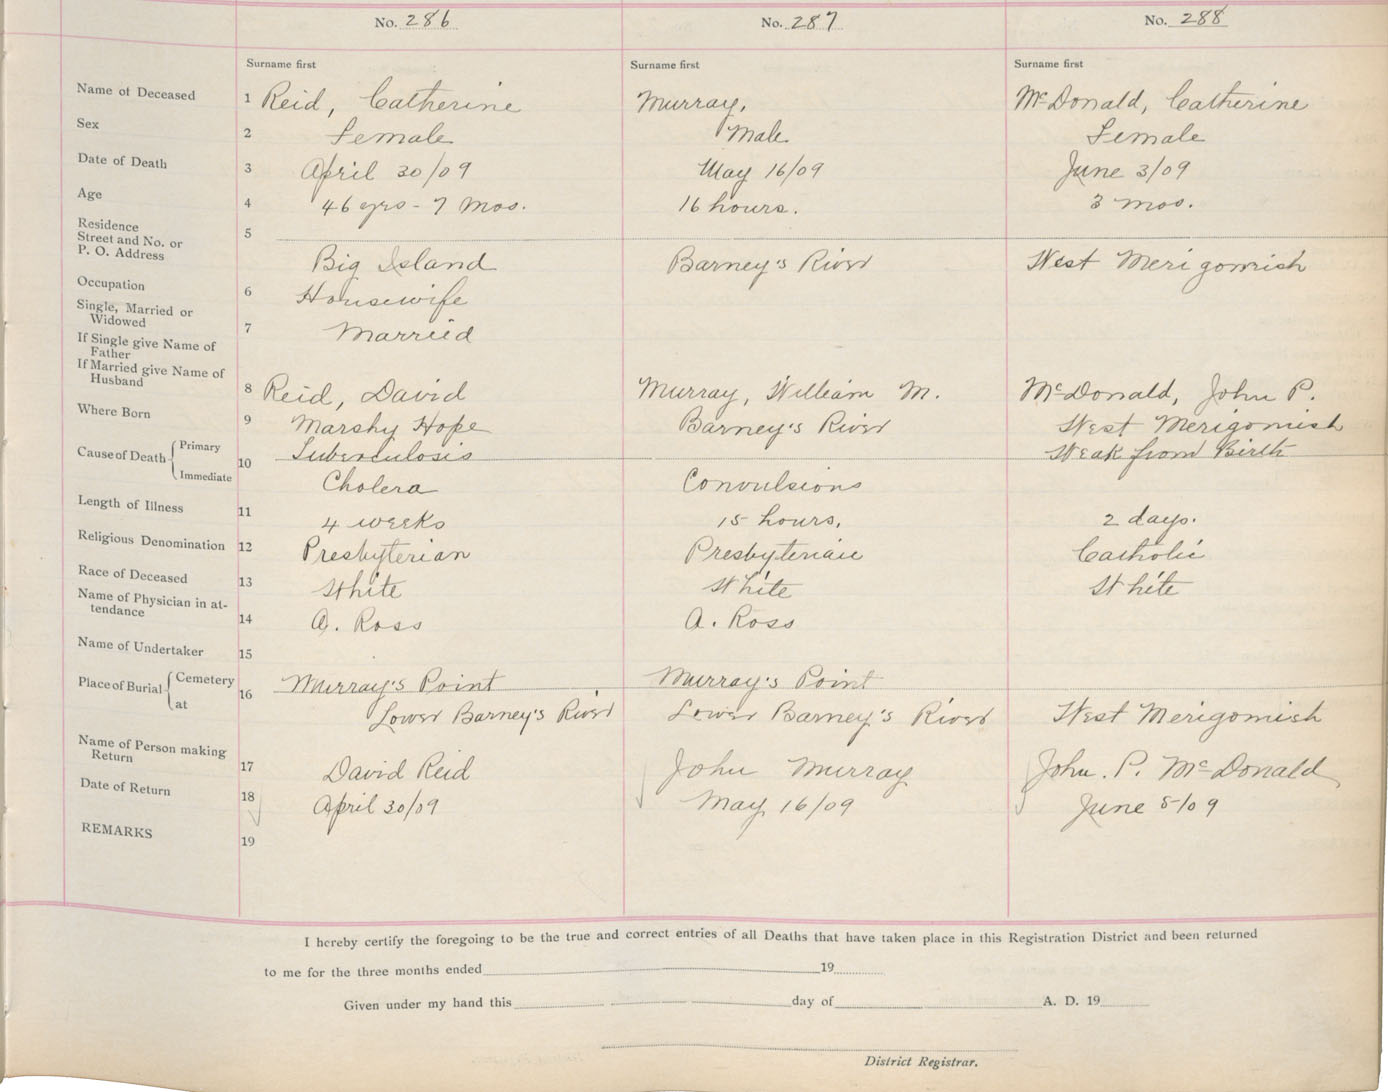 No. 286 No. 287 No. 288
Surname first Surname first Surname first
Name of Deceased 1 Reid, Catherine Murray, McDonald, Catherine
Sex 2 Female Male Female
Date of Death 3 April 30/09 May 16/09 June 3/09
Age 4 46 yrs - 7 mos. 16 hours. 3 mos.
Residence
Street and No. or 5
P. O. Address Big Island Barney's River West Merigomish
Occupation 6 Housewife
Single, Married or
Widowed 7 Married
If Single give Name of
Father
If Married give Name of
Husband 8 Reid, David Murray, William M. McDonald, John P.
Where Born 9 Marshy Hope Barney's River West Merigomish
Cause of Death Primary 10 Tuberculosis Weak from Birth
Immediate Cholera Convulsions
Length of Illness 11 4 weeks 15 hours. 2 days.
Religious Denomination 12 Presbyterian Presbyterian Catholic
Race of Deceased 13 White White White
Name of Physician in at-
tendance 14 A. Ross A. Ross
Name of Undertaker 15
Place of Burial Cemetery 16 Murray's Point Murray's Point
at Lower Barney's River Lower Barney's River West Merigomish
Name of Person making
Return 17 David Reid John Murray John. P. McDonald
Date of Return 18 April 30/09 May 16/09 June 5/09
REMARKS 19
I hereby certify the foregoing to be the true and correct entries of all Deaths that have taken place in this Registration District and been returned
to me for the three months ended 19
Given under my hand this day of A. D. 19
District Registrar.